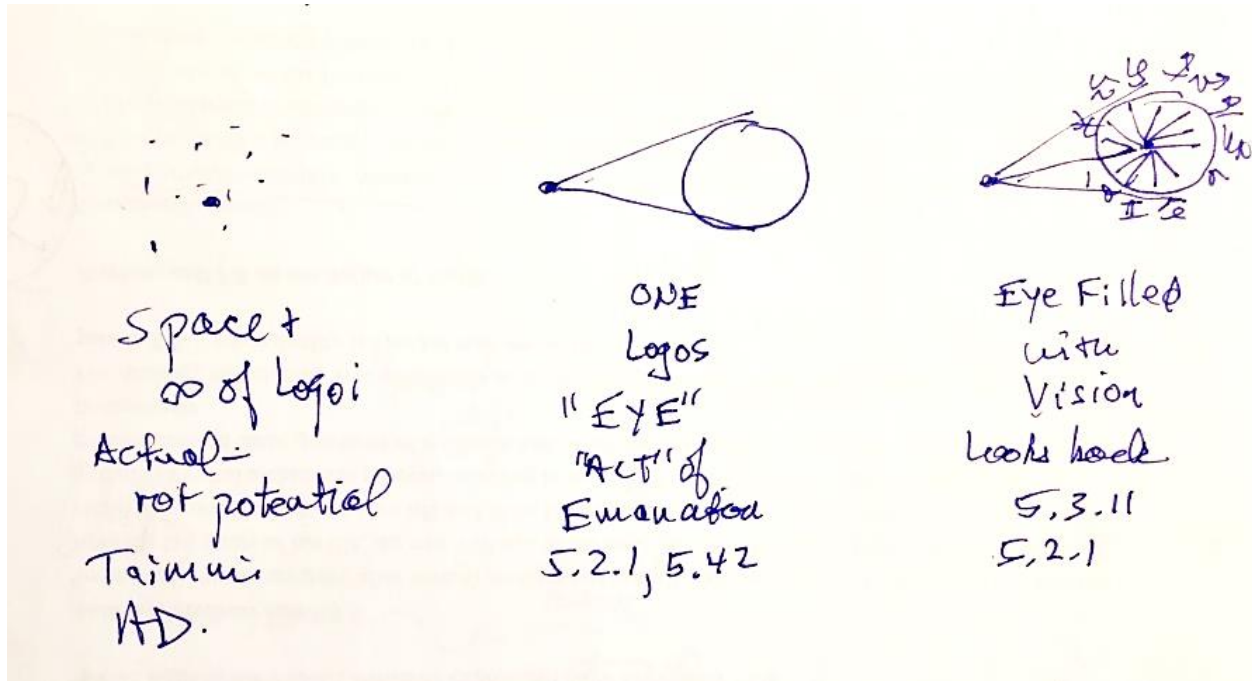 Space +
∞ of Logoi
Actual -
not potential
Taimni
AD.
ONE
Logos
"EYE"
"Act" of
Emanation
5.2.1, 5.42
Eye Filled
with
Vision
Looks back
5.3.11
5.2.1